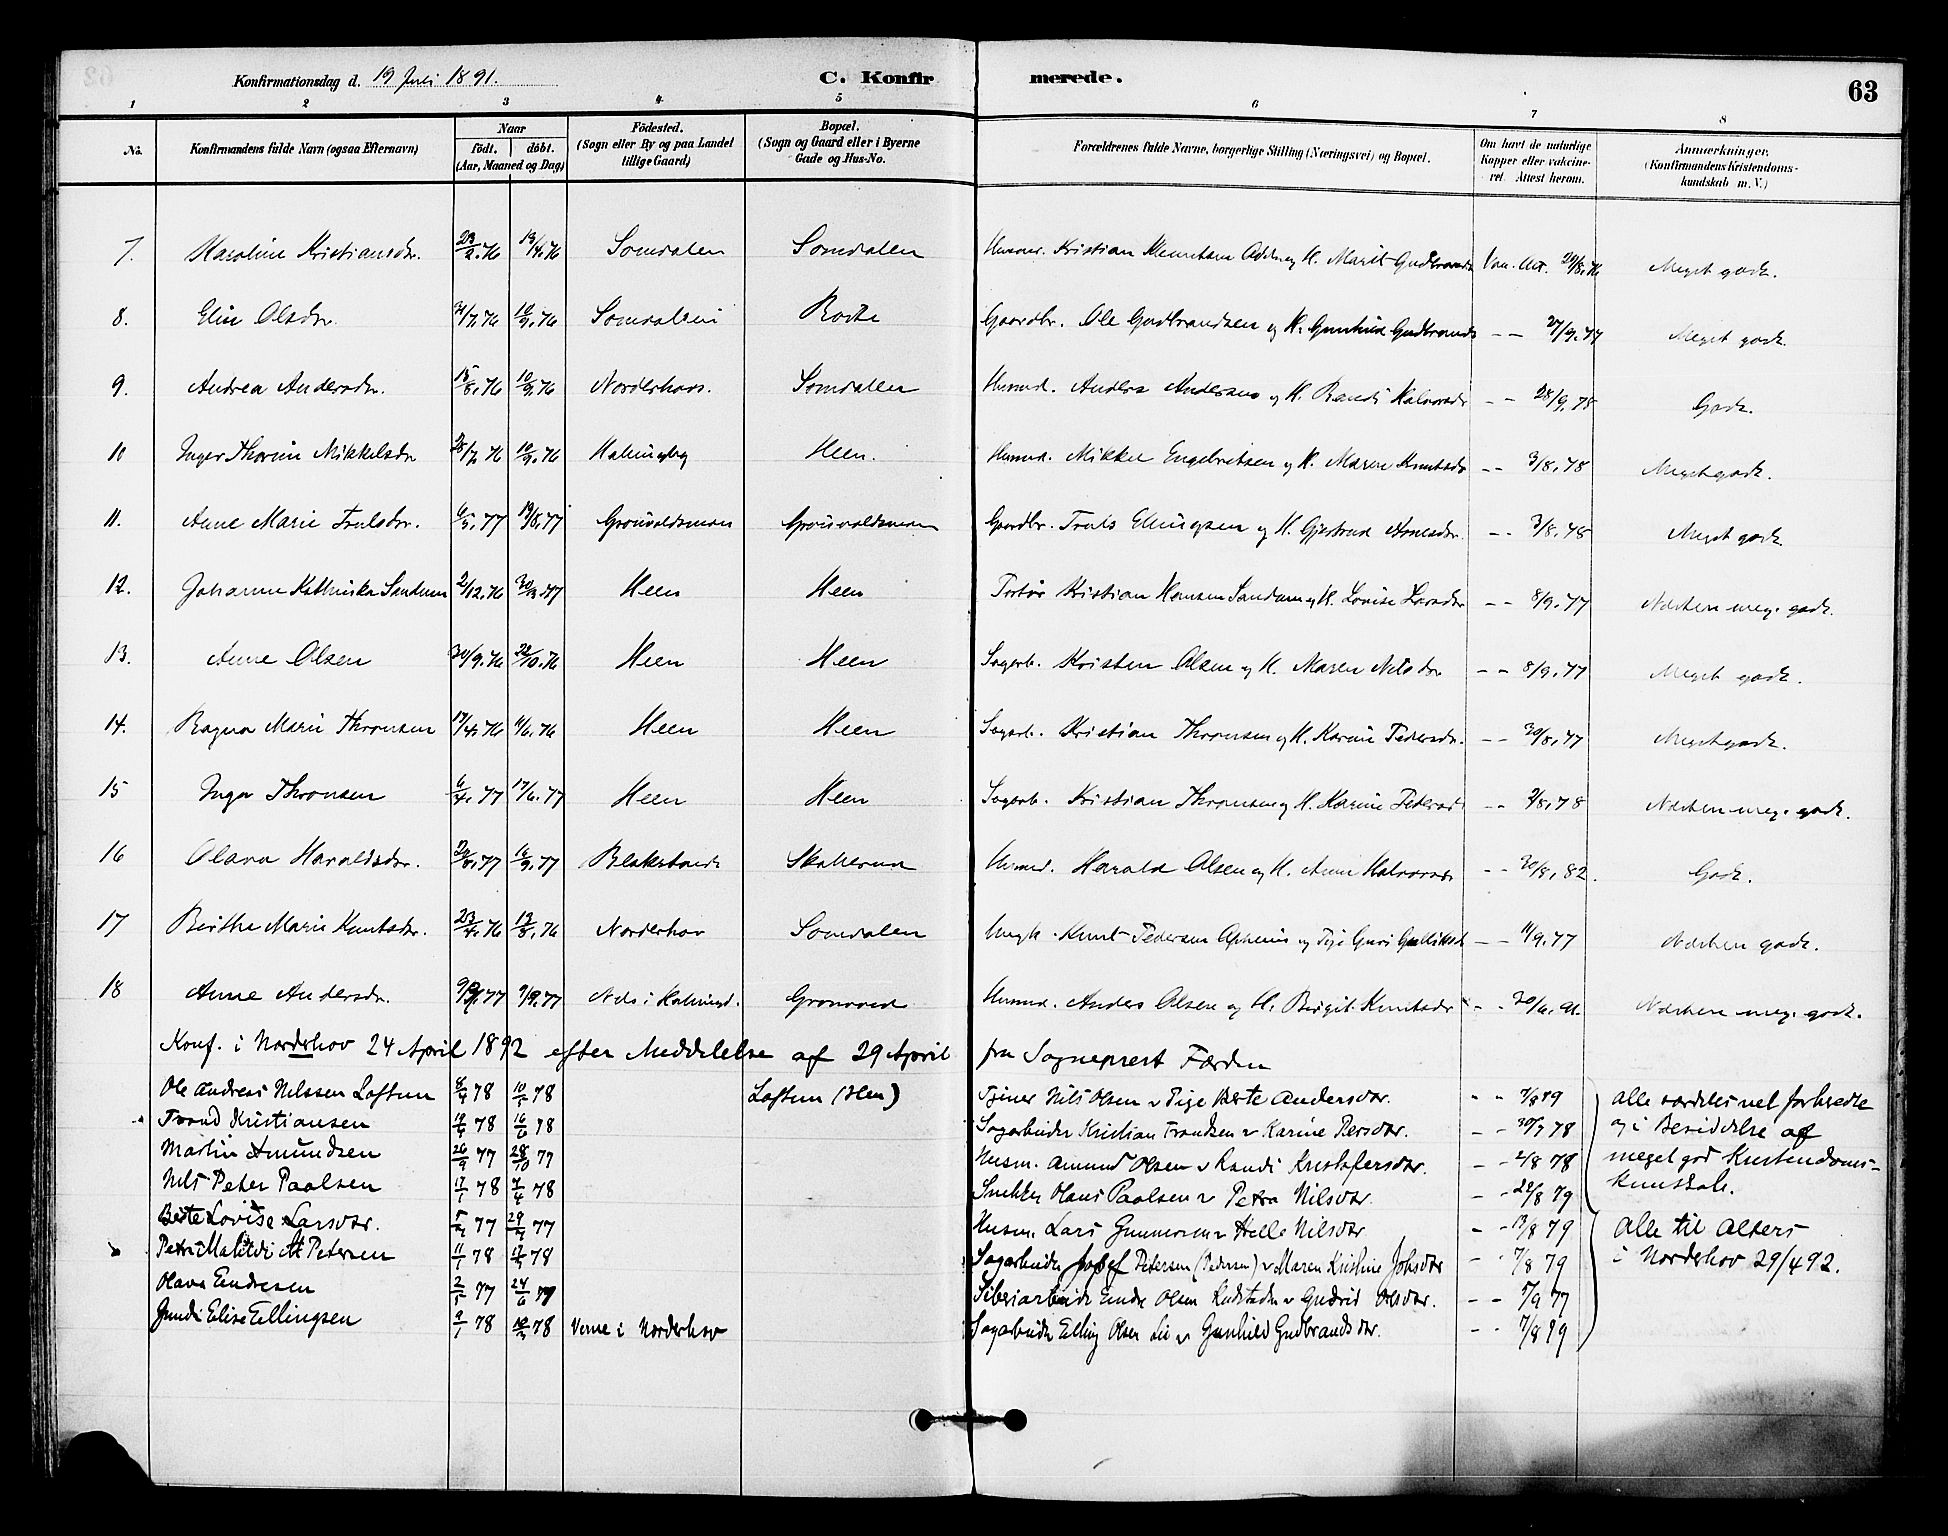 Konfirmationsdag d. 19 Juli 1891. C. Konfirmerede. 63
1 2 3 4 5 6 7 8
No. Konfirmandens fulde Navn (ogsaa Efternavn) Naar födt. döbt. (Aar, Maaned og Dag) Födested. (Sogn eller By og paa Landet tillige Gaard) Bopæl. (Sogn og Gaard eller i Byerne Gade og Hus-No. Forældrenes fulde Navne, borgerlige Stilling (Næringsvei) og Bopæl. Om havt de naturlige Kopper eller vakcineret. Attest herom. Anmærkninger. (Konfirmandens Kristendomskundskab m. V.)
7. Karoline Kristiansdr. 23/2.76 13/4.76 Somdalen Somdalen Kristian og H. Marit Gudbrandsd Vac. Att. 29/8.76 Meget godt.
8. Elin Olsdr. 31/7.76 10/9.76 Somdalen Gaardbr. Ole Gudbrandsen og H. Gunhild Gudbrands - - 27/9.77 Meget godt.
9. Andrea Andersdr. 15/8.76 10/9.76 Norderhov. Somdalen Husmd. Anders Andersen og H. Randi Halvorsdr - - 28/9.78 Godt.
10 Inger Thorine Mikkelsdr 28/7.76 10/9.76 Heen. Husmd. Mikkel Engebretsen og H. Maren Knutsdr - - 3/8.78 Meget godt.
11. Anne Marie Trulsdr. 6/5.77 19/8.77 Gronvoldsmoen Gronvoldsmoen Gaardbr. Truls Ellingsen og H. Gjertrud - - 3/8.78 Meget godt.
12. Johanne Kathinka Sandum 2/12.76 Heen Heen Kristian Hansen Sandum og H. Lovise Larsdr - - 8/9.77 Næsten meg. godt.
13. Anne Olsen 30/9.76 22/10.76 Heen Heen Sagarb. Kristen Olsen og H. Maren Nilsdr - - 8/9.77 Meget godt.
14. Ragna Marie Thronsen 17/4.76 11/6.76 Heen Heen Sagarb. Kristian Thronsen og H. Karine Pedersdr. - - 30/8.77 Meget godt.
15 Inga Thronsen 6/4.77 17/6.77 Heen Heen Sagarb. Kristian Thronsen og H. Karine Pedersd - - 2/8.78 Næsten meg. godt.
16 Olava Haraldsdr. 77 16/9.77 Husmd. Harald Olsen og H. Anne Halvorsdr - - 30/8.82. Godt.
17 Birthe Marie Knutsdr. 23/4.76 13/8.76 Norderhov Somdalen Ungk. Knut Pedersen og Pige Guri Gulliksd - - 11/9.77 Næsten godt.
18 Anne Andersdr. 77 9/9.77 Gronvold Husmd. Anders Olsen og H. Birgit Knutsdr - - 30/6.91. Næsten meg. godt.
Konf. i Norderhov 24 April 1892 efter Meddelelse af 29 April fra Sogneprest Færden
Ole Andreas Nilssen Loftum 8/4 78 10/5 78 Loftum (Hen) Tjener Nils Olsen v Pige Berte Andersdtr. - - 7/8 79 Alle særdeles vel forberedte
Trond Kristiansen 78 16/6 78 Sagarbeider Kristian Trondsen v Karine Persdtr. - - 30/7 78 og i Besiddelse af
Martin Amundsen 26/9 77 28/10 77 Husm. Amund Olsen v Randi Kristofersdtr. - - 2/8 78 meget god Kristendoms-
Nils Peter Paalsen 17/1 78 7/4 78 Snekker Olaus Paalsen v Petra Nilsdtr. - - 22/8 79 kunskab.
Berte Lovise Larsdtr. 77 29/4 77 Husm. Lars Gunnersen v Helle Nilsdtr - - 13/8 79 Alle til Alters
Petra Matilde Petersen 11/1 78 78 Sagarbeider Josef Petersen (Pedersen) v Maren Kristine - - 7/8 79 i Norderhov 29/4 92.
Olava Endresen 2/5 77 24/6 77 Endre Olsen v Gudrid Olsdtr. - - 5/9 77
Gunda Elise Ellingsen 9/1 78 78 Verne i Norderhov Sagarbeider Elling Olsen Lie v Gunhild Gudbrandsdtr. - - 7/8 79